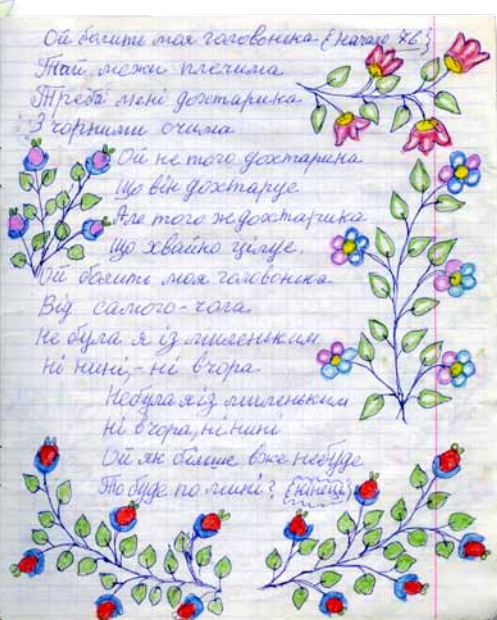 Ой болить моя головонька (начало 76)
Тай межи плечима
Треба мені дохтарика
З чорними очима
Ой не того дохтарика
Що він дохтарує
Але того ж дохтарика
Що файно цілує.
Ой болить моя головонька
Від самого - чола
Не була я із миленьким
Ні нині, - ні вчора
Небула я із миленьким
Ні вчора, ні нині
Ой як більше вже небуде
То буде по мині? (кінець)